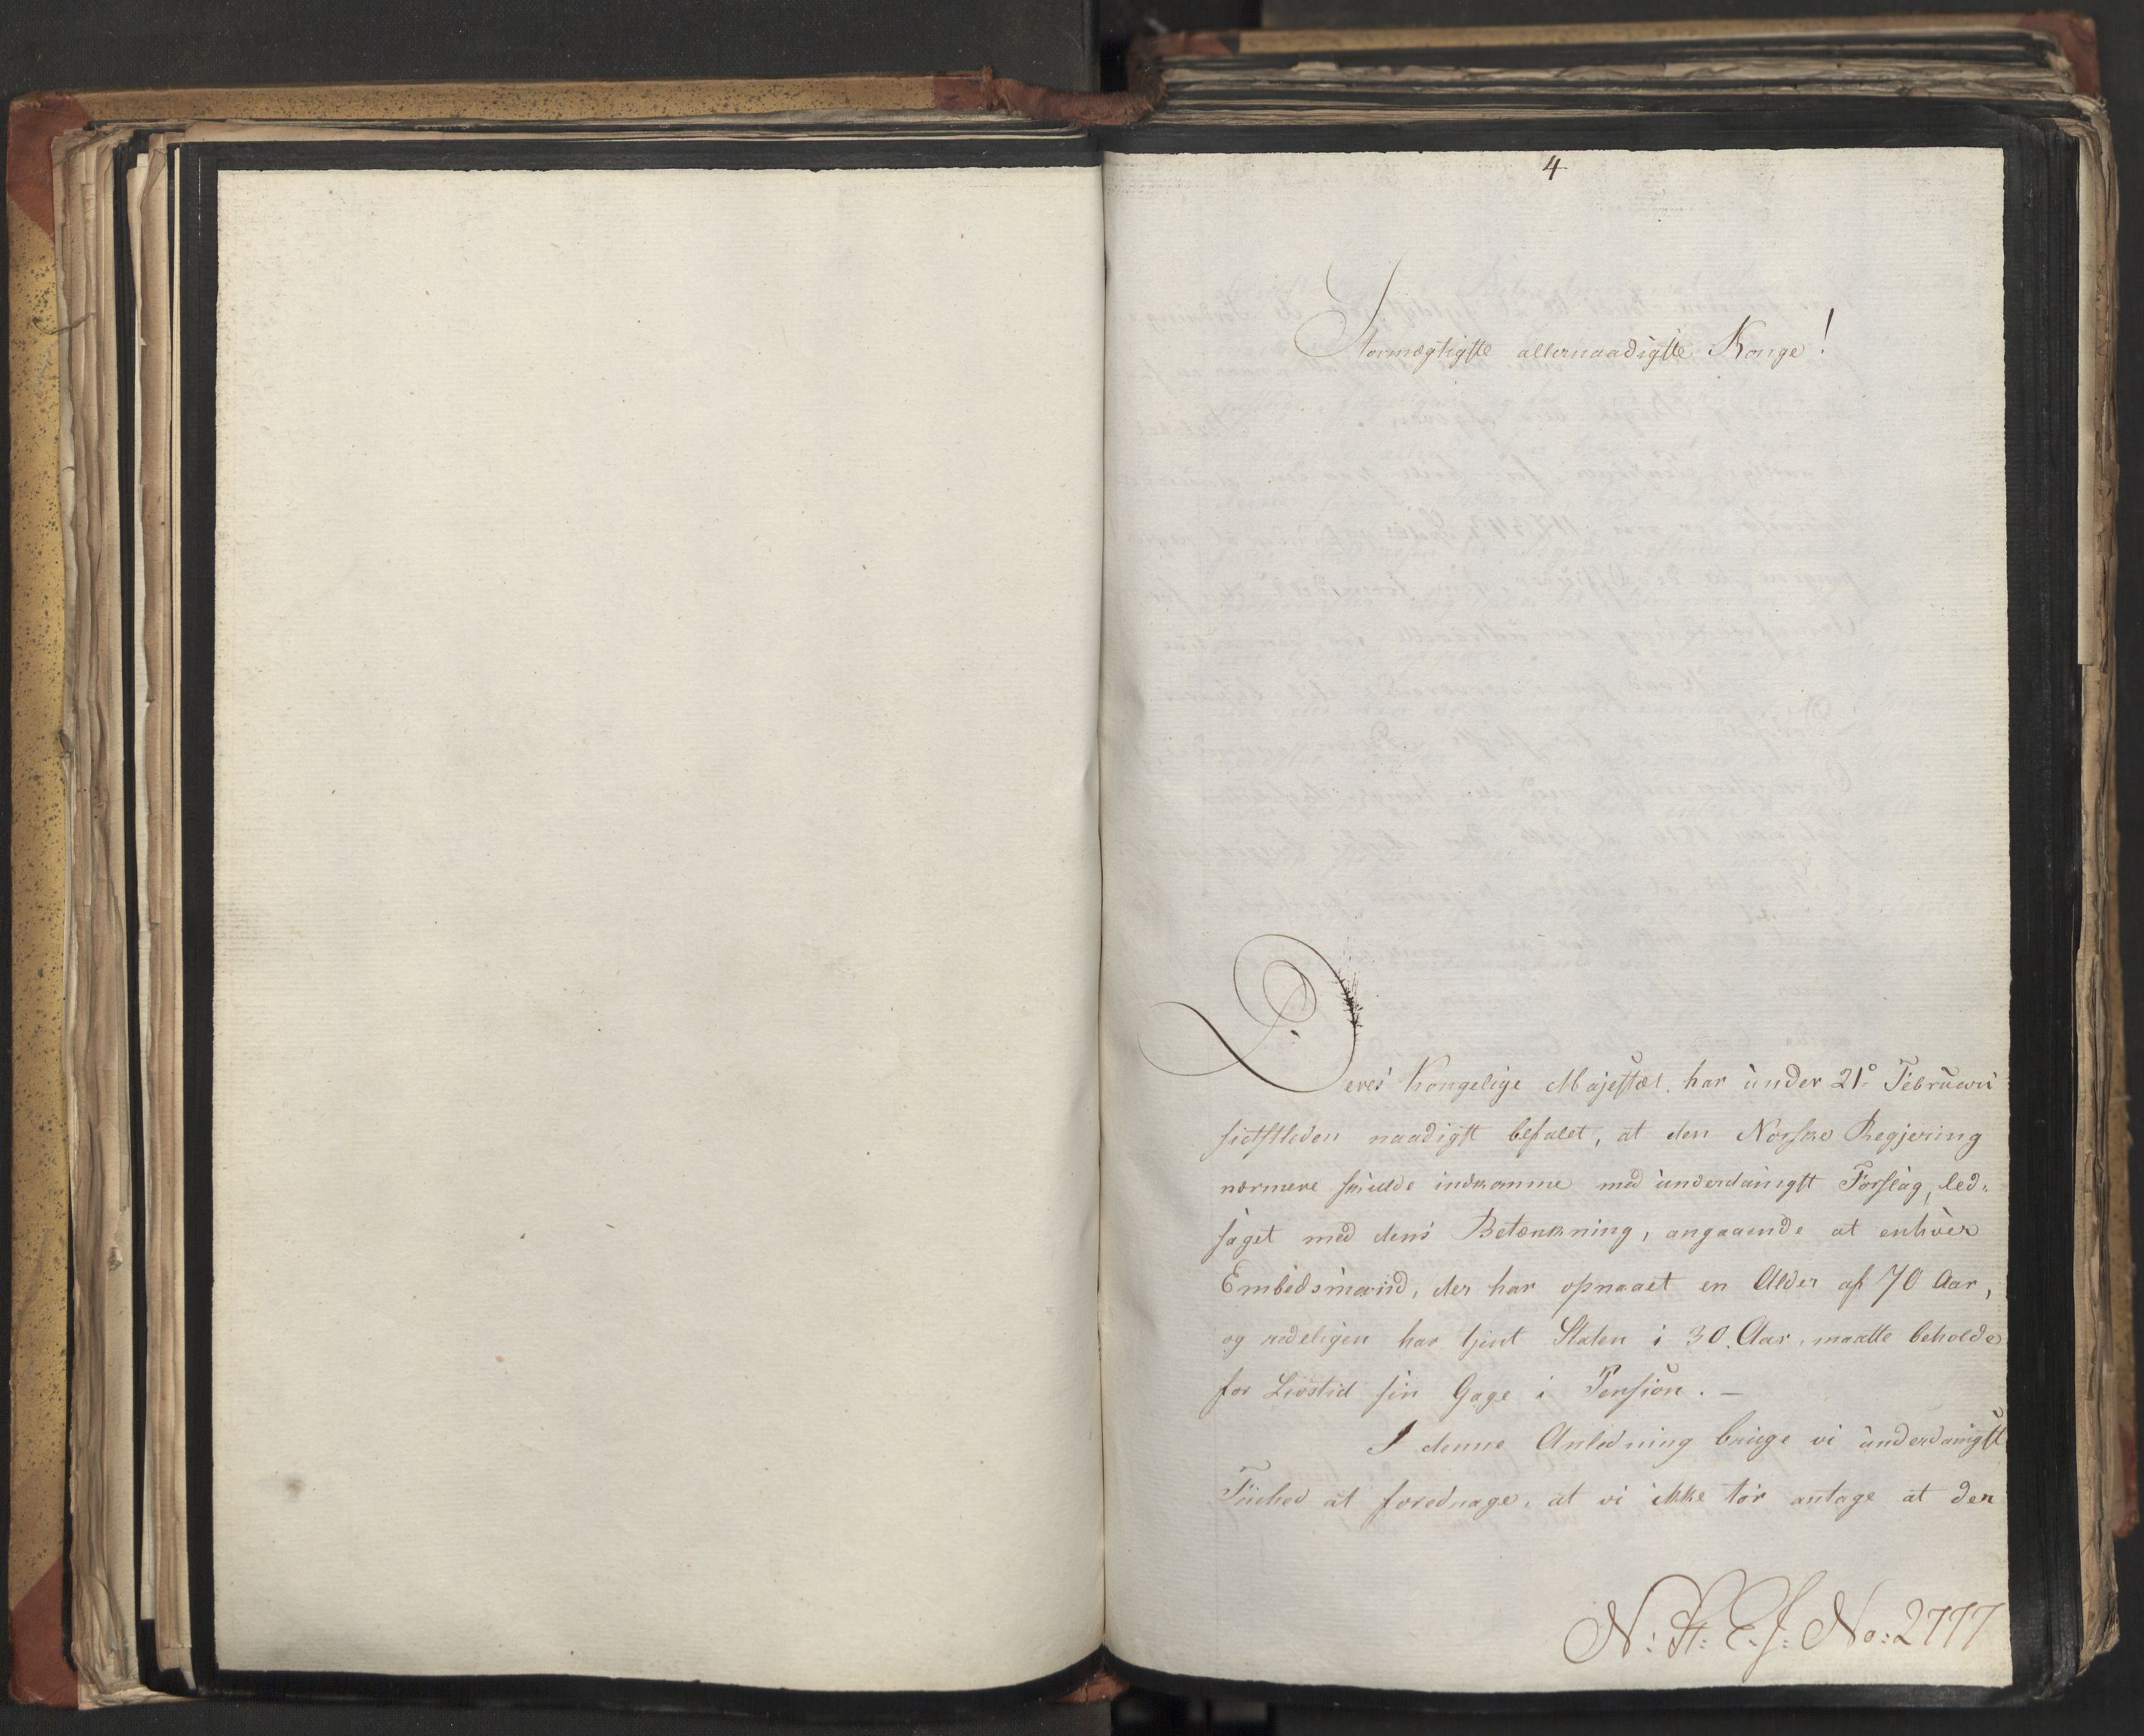 4
Stormægtigste allernaadigste Konge!
Deres Kongelige Majestæt har under 21de Februari
sidstleden naadigst befalet, at den Norske Regjering
nærmere skulde indkomme med underdanigst Forslag, led-
saget med dens Betænkning, angaaende at enhver
Embedsmand, der har opnaaet en Alder af 70 Aar,
og redeligen har tjent Staten i 30 Aar, maatte beholde
for Livstid sin Gage i Pension. —
I denne Anledning bruge vi underdanigst
Friehed at foredrage, at vi ikke tør antage at den
N: St: E. J: No: 2777